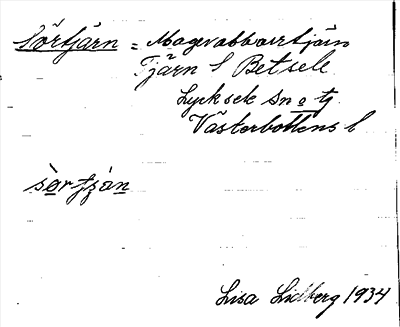 Sörtjärn = Magrabborrtjärn
Tjärn S Betsele
Lycksele sn o tj.
Västerbottens l
sòrtjàn
Lisa Lidberg 1934